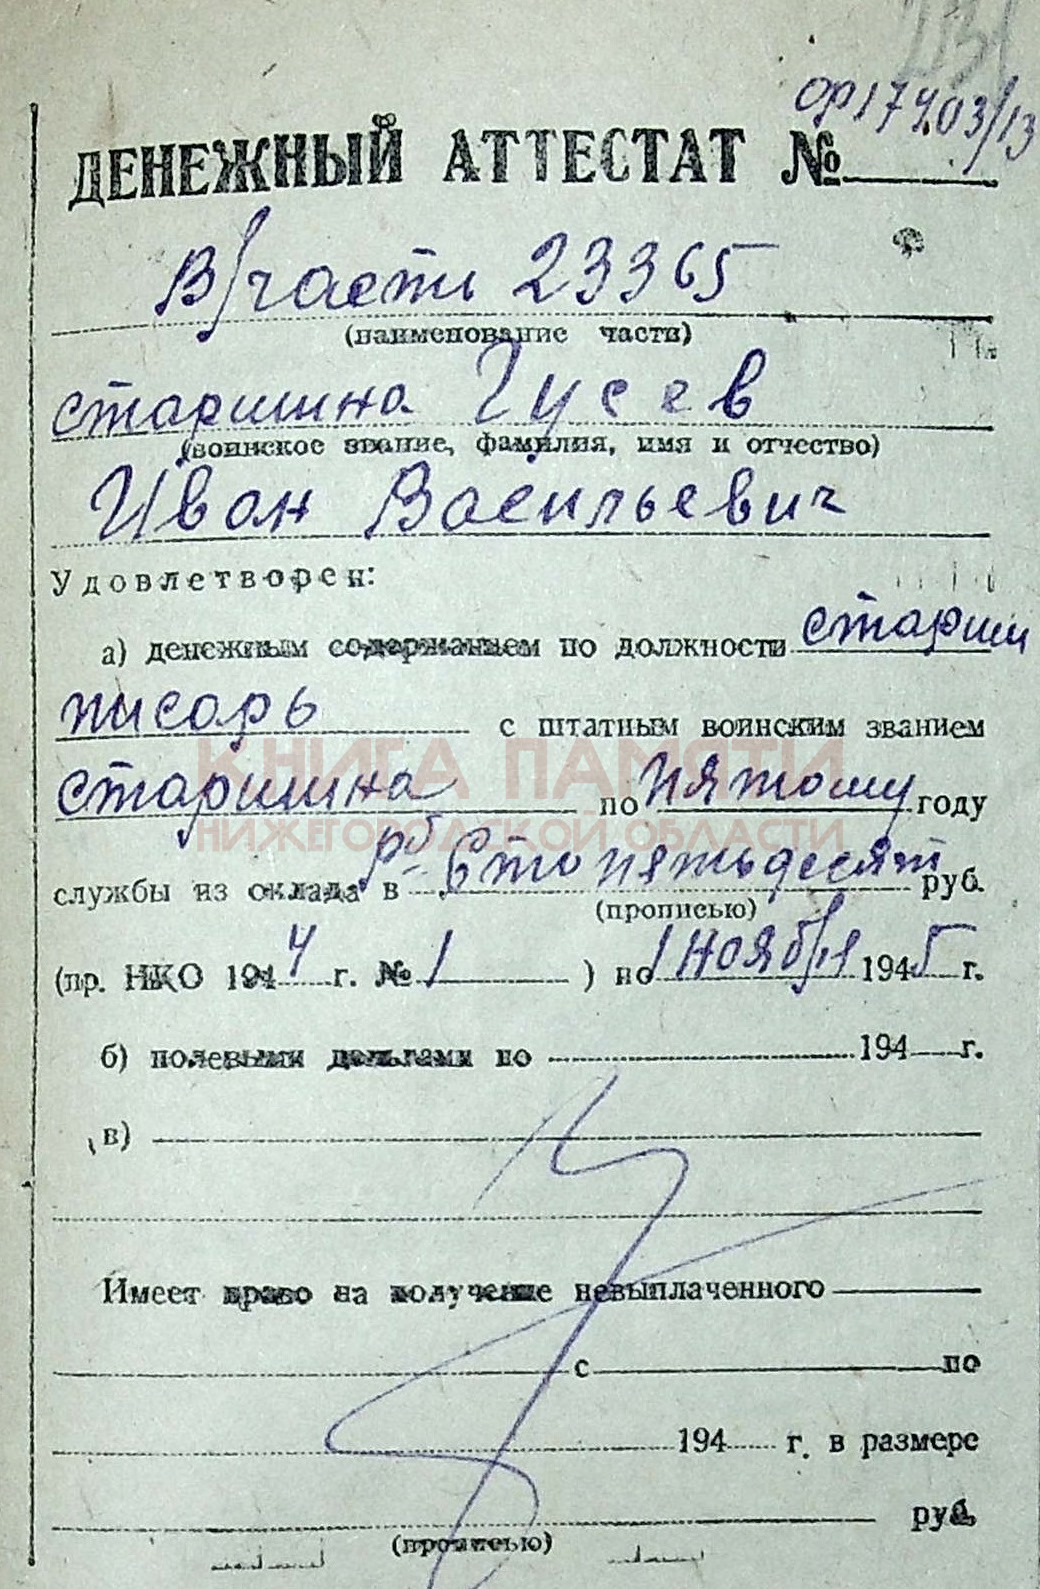 231
ор17403/13
ДЕНЕЖНЫЙ АТТЕСТАТ №
В/части 23365
(наименование части)
старшина Гусев
(воинское звание, фамилия, имя и отчество)
Иван Васильевич
Удовлетворен:
а) денежным содержанием по должности старши
писарь с штатным воинским званием
КНИГА ПАМЯТИ
старшина по пятому году
НИЖЕГОРОДСКОЙ ОБЛАСТИ
службы из оклада в рб- Сто пятьдесят руб.
(прописью)
(пр. НКО 1944 г. № 1 ) по 1 ноября 1945 г.
б) полевыми деньгами по 194 г.
в)
Имеет право на получение невыплаченного
с по
194 г. в размере
руб.
(прописью)